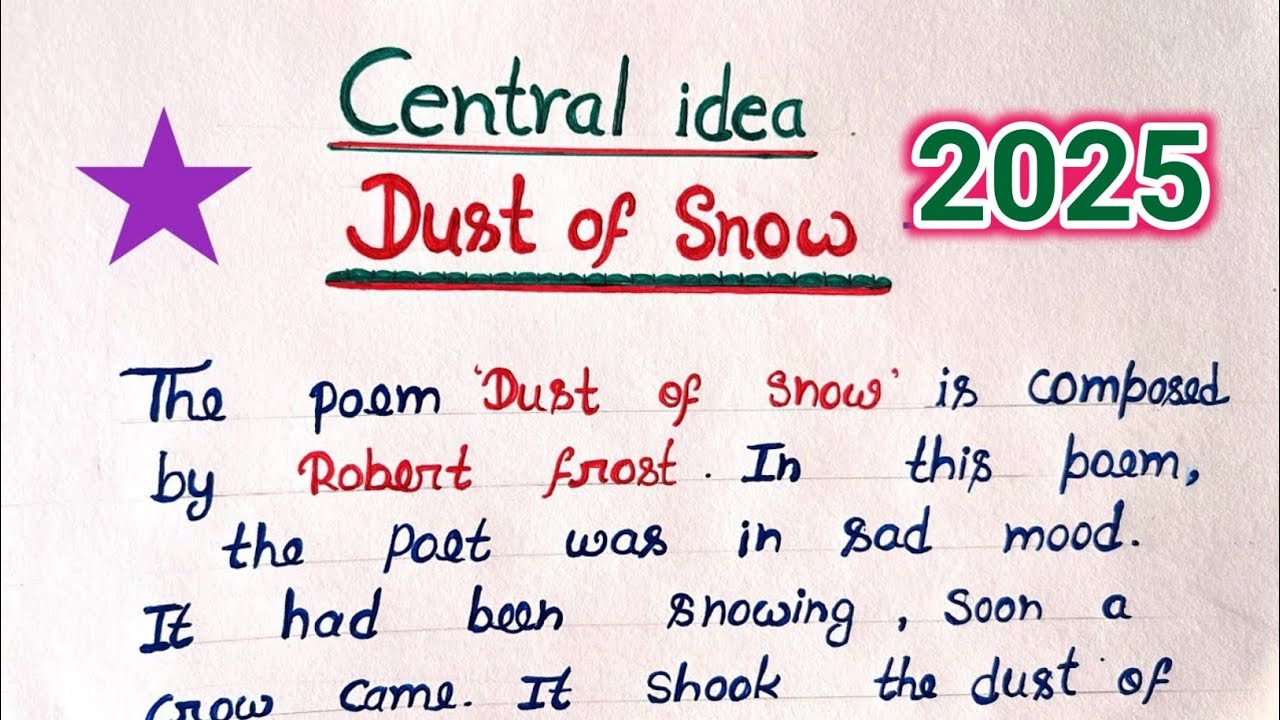 Central idea
2025
Dust of Snow
The poem 'Dust of snow' is composed
by Robert frost. In this poem,
the poet was in sad mood.
It had been snowing, soon a
crow came. It shook the dust of